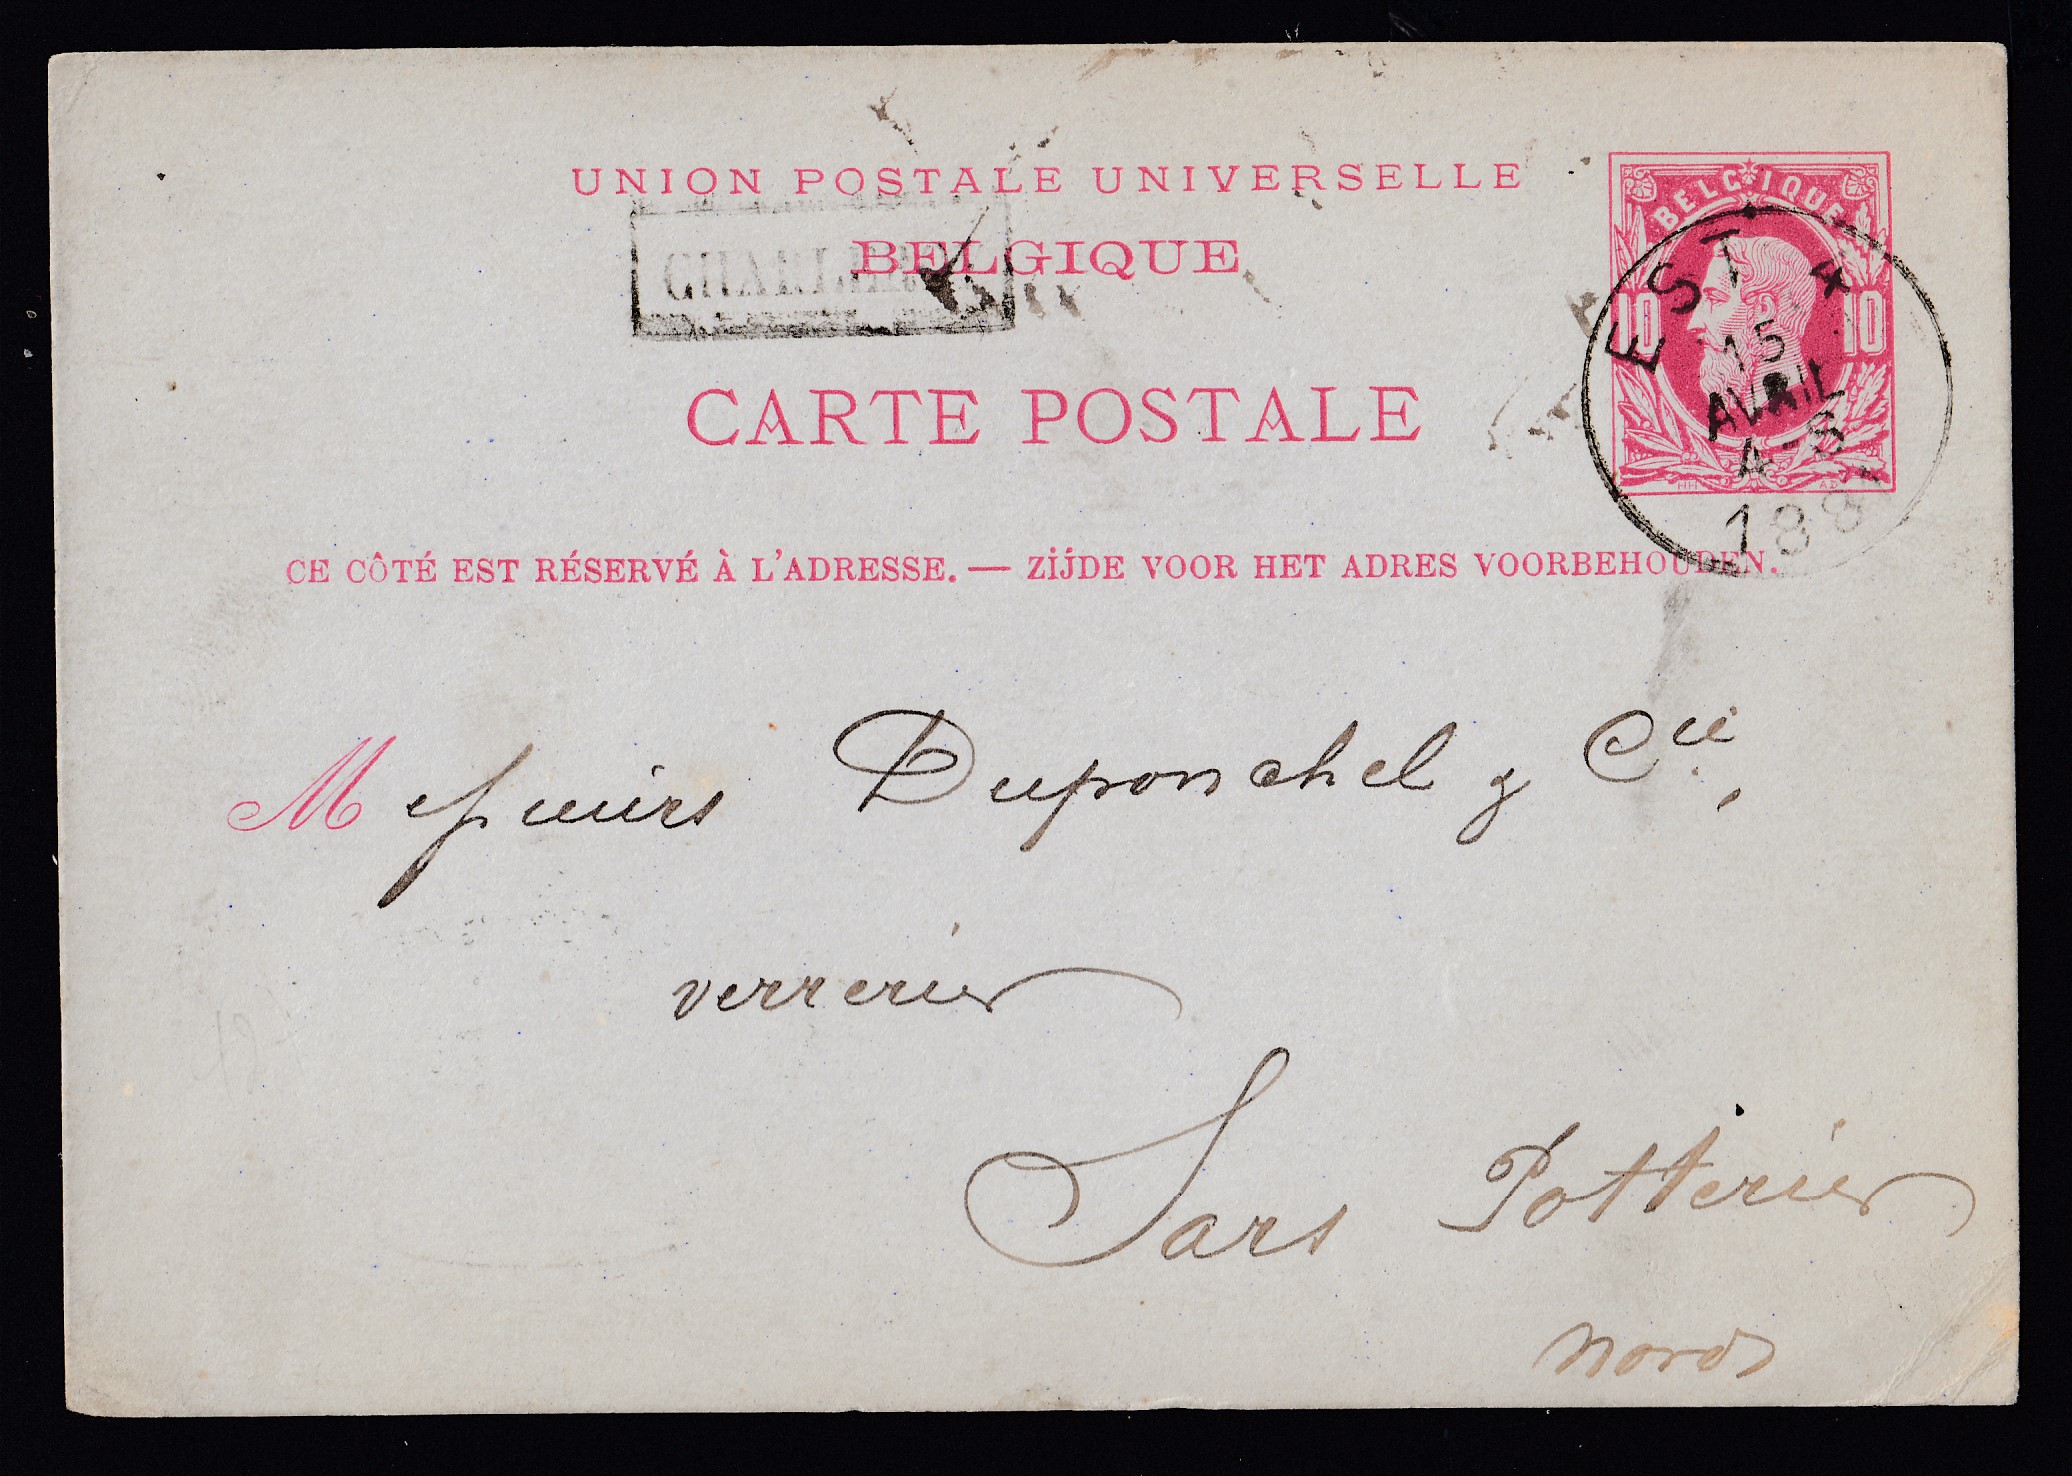 UNION POSTALE UNIVERSELLE
BELGIQUE
CARTE POSTALE
BELGIQUE
10 10
EST 4
15
AVRIL
4-5
188
CE CÔTÉ EST RÉSERVÉ À L'ADRESSE. — ZIJDE VOOR HET ADRES VOORBEHOUDEN.
Messieurs Duponchel & Cie.
verreries
Sars Potteries
Nord